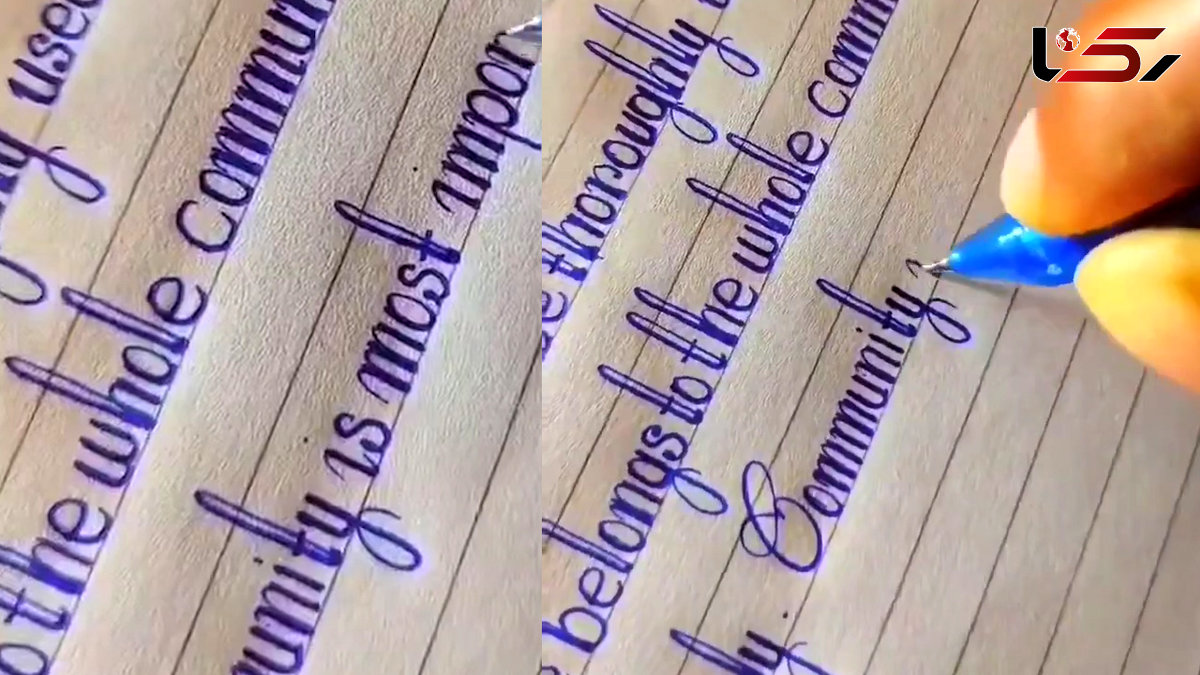 used
o the whole commun
unity is most impor
thoroughly
belongs to the whole comm
hly. Community